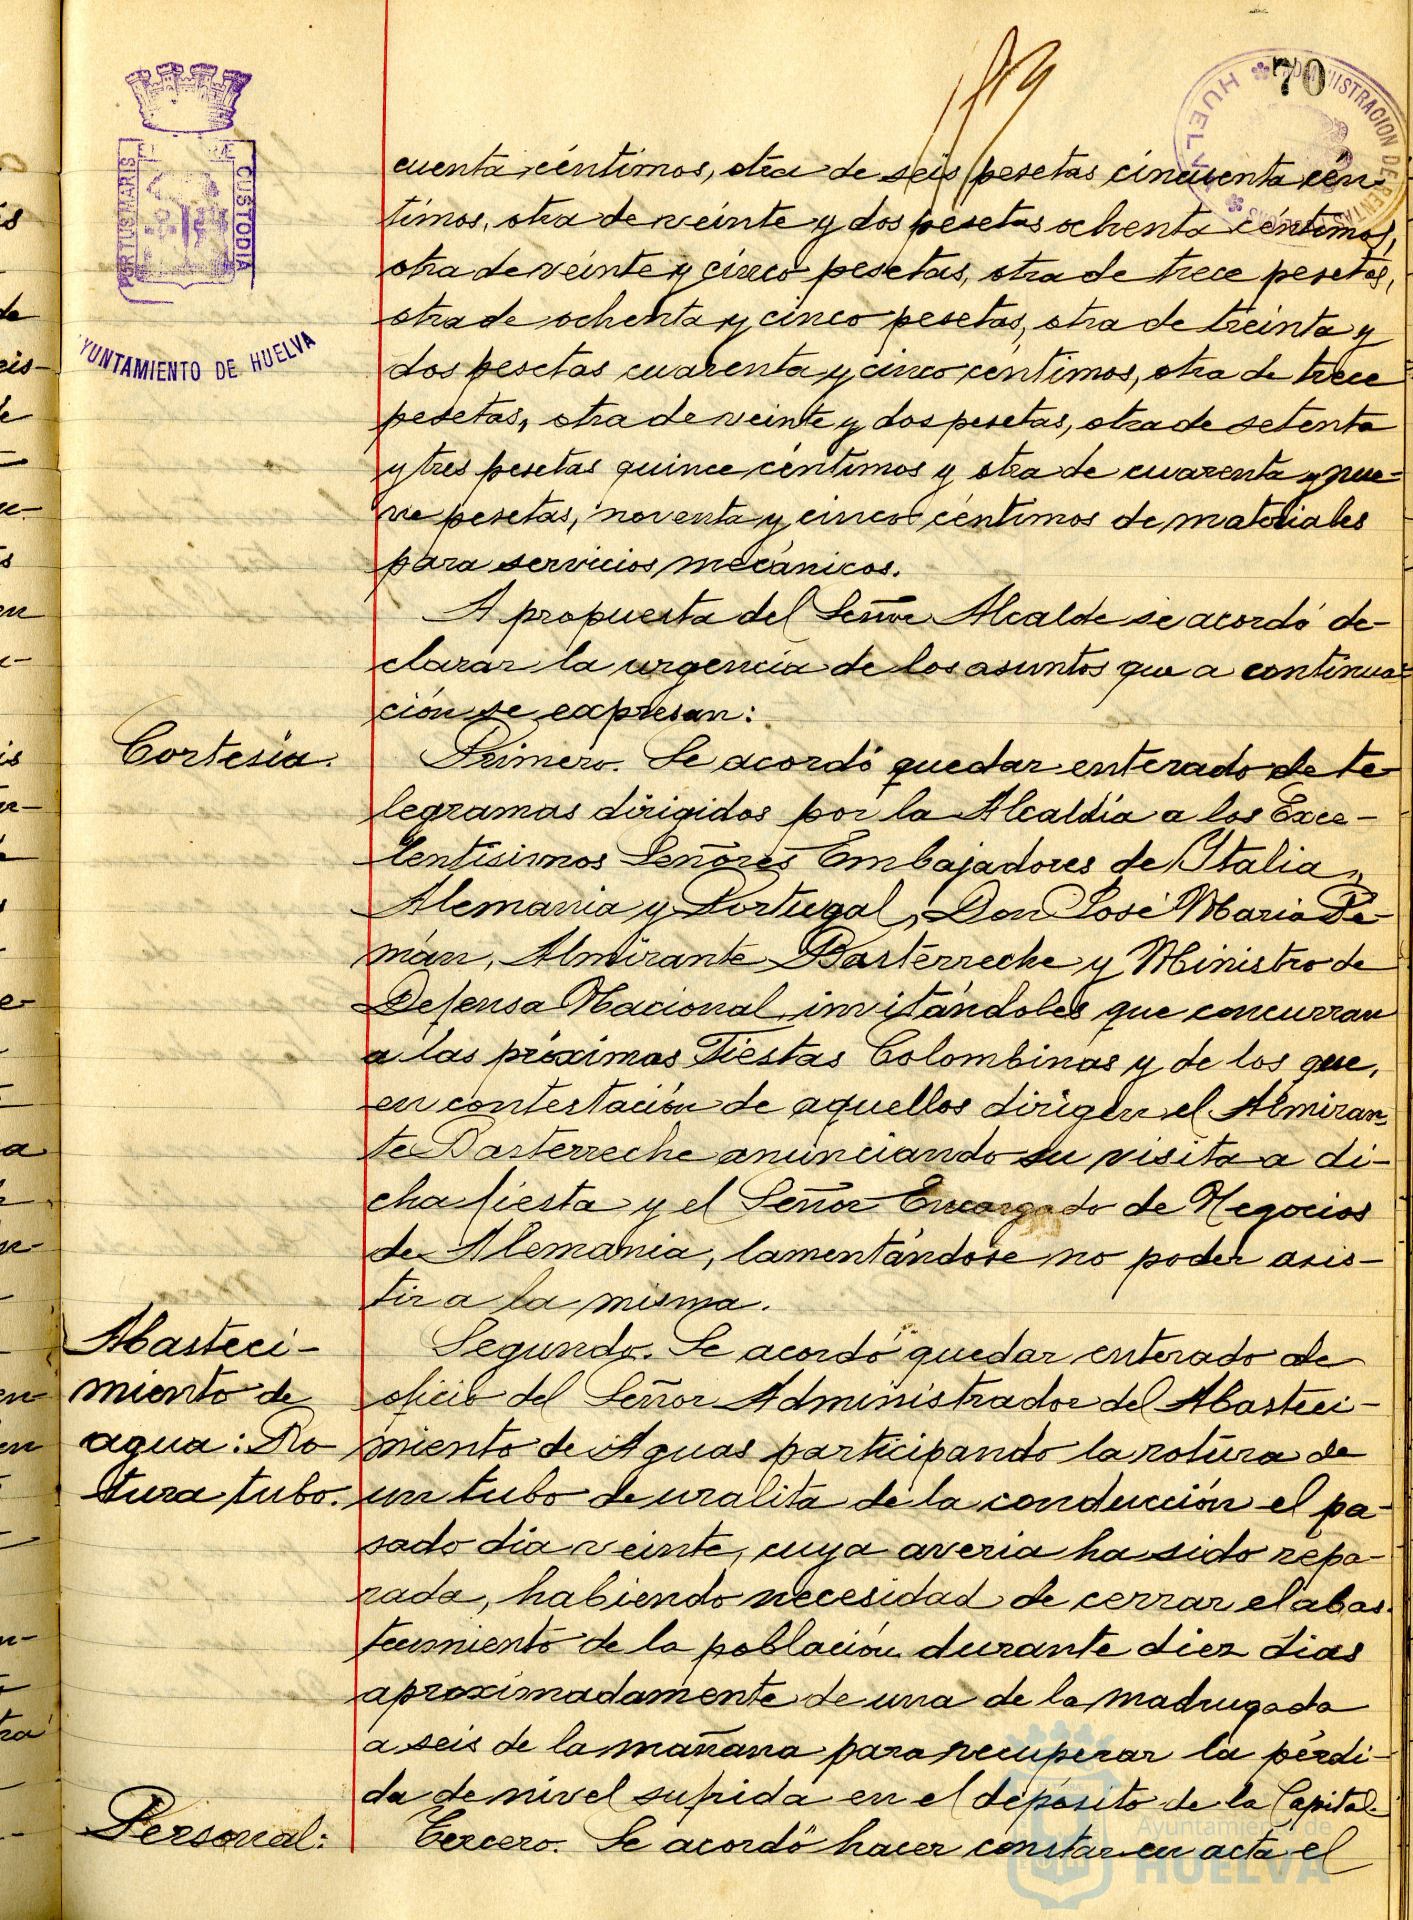 70
ADMINISTRACION DE RENTAS
HUELVA
PORTUS MARIS
CUSTODIA
AYUNTAMIENTO DE HUELVA
cuenta céntimos, otra de seis pesetas cincuenta cén-
timos, otra de veinte y dos pesetas ochenta céntimos,
otra de veinte y cinco pesetas, otra de trece pesetas,
otra de ochenta y cinco pesetas, otra de treinta y
dos pesetas cuarenta y cinco céntimos, otra de trece
pesetas, otra de veinte y dos pesetas, otra de setenta
y tres pesetas quince céntimos y otra de cuarenta y nue-
ve pesetas, noventa y cinco céntimos de materiales
para servicios mecánicos.
A propuesta del Señor Alcalde se acordó de-
clarar la urgencia de los asuntos que a continua-
ción se expresan:
Cortesía.
Primero. Se acordó quedar enterado de te-
legramas dirigidos por la Alcaldía a los Exce-
lentísimos Señores Embajadores de Italia,
Alemania y Portugal, Don José Maria Pe-
mán, Almirante Basterreche y Ministro de
Defensa Nacional invitándoles que concurran
a las próximas Fiestas Colombinas y de los que,
en contestación de aquellos dirigen el Almiran-
te Basterreche anunciando su visita a di-
cha fiesta y el Señor Encargado de Negocios
de Alemania, lamentándose no poder asis-
tir a la misma.
Abasteci-
miento de
agua: Ro-
tura tubo.
Segundo. Se acordó quedar enterado de
oficio del Señor Administrador del Abasteci-
miento de Aguas participando la rotura de
un tubo de uralita de la conducción el pa-
sado día veinte, cuya averia ha sido repa-
rada, habiendo necesidad de cerrar el abas-
tecimiento de la población durante diez días
aproximadamente de una de la madrugada
a seis de la mañana para recuperar la pérdi-
da de nivel sufrida en el depósito de la Capital.
Personal:
Tercero. Se acordó hacer constar en acta el
Ayuntamiento de
HUELVA